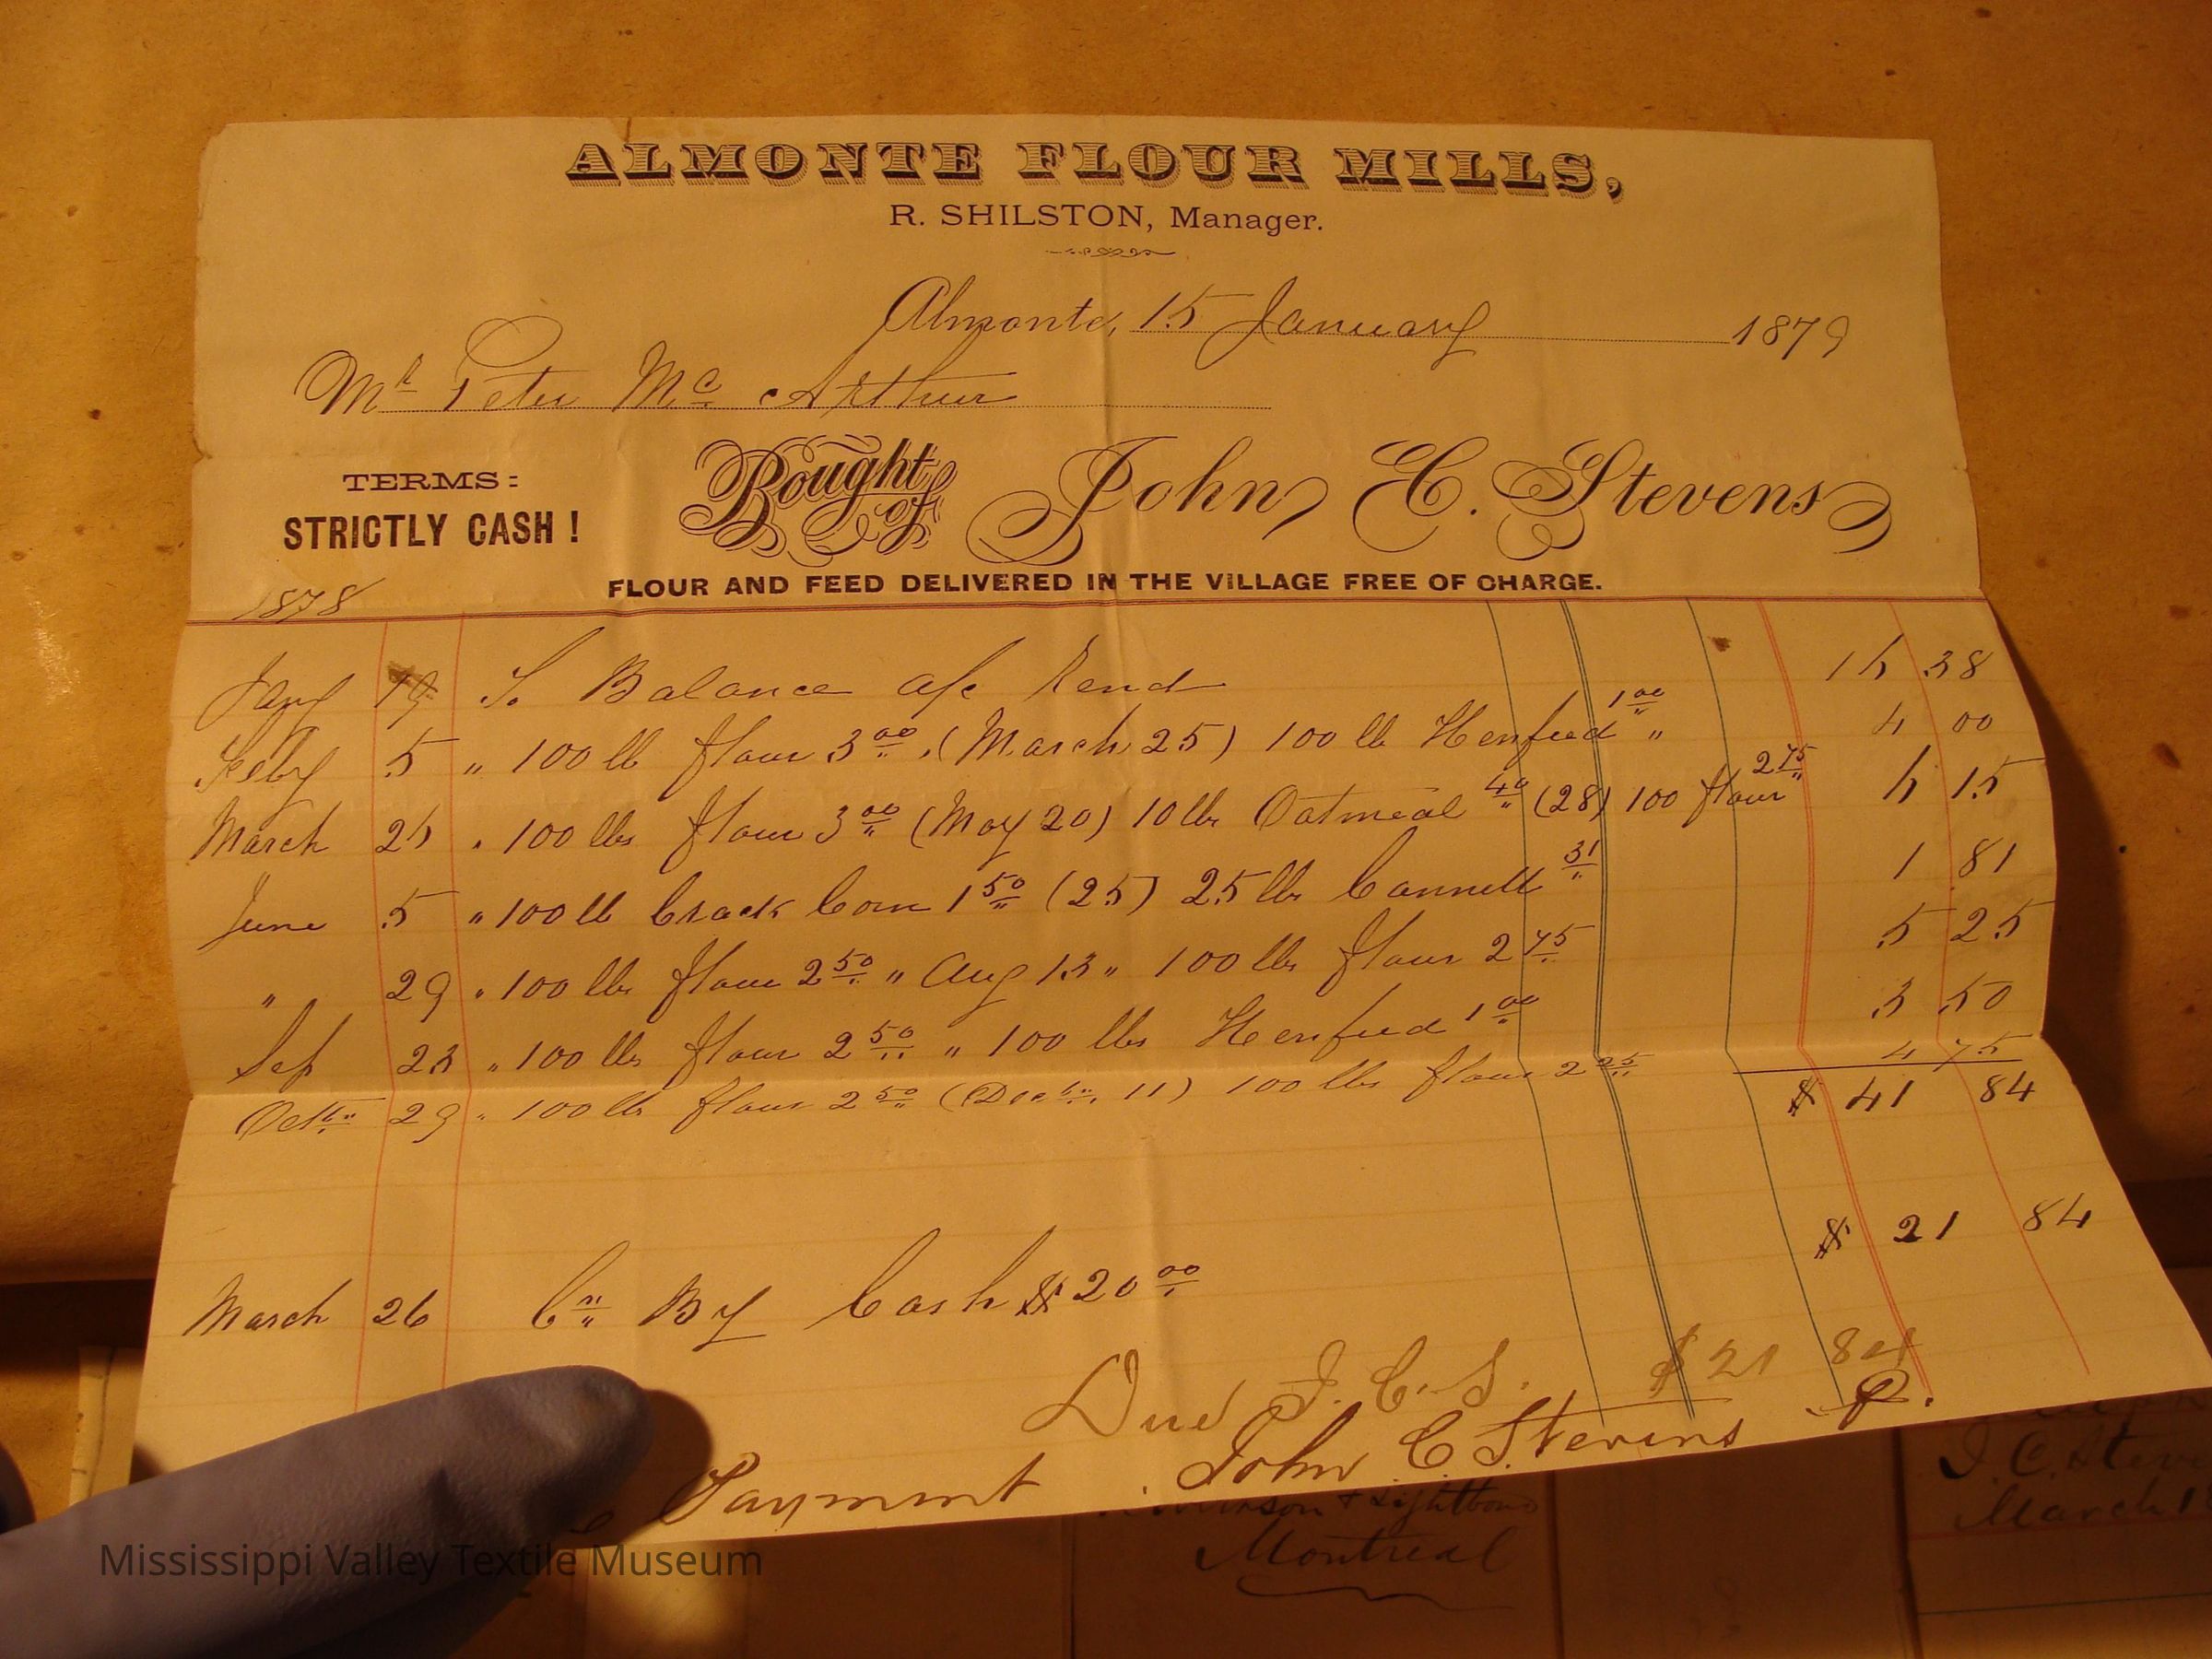 ALMONTE FLOUR MILLS,
R. SHILSTON, Manager.
Almonte, 15 January 1879
Mr Peter Mc Arthur
TERMS:
STRICTLY CASH!
Bought of John C. Stevens
FLOUR AND FEED DELIVERED IN THE VILLAGE FREE OF CHARGE.
1878
Jany 19 To Balance a/c Rend 16 38
Feby 5 " 100 lb flour 3 00 " (March 25) 100 lb Henfeed 1 00 " 4 00
March 26 " 100 lbs flour 3 00 (May 20) 10 lbs Oatmeal 40 (28) 100 flour 2 75 6 15
June 5 " 100 lb Crack Corn 1 50 (25) 25 lbs Cannell 31 1 81
" 29 " 100 lbs flour 2 50 " Aug 13 " 100 lbs flour 2 75 5 25
Sep 23 " 100 lbs flour 2 50 " 100 lbs Henfeed 1 00 3 50
Octbr 29 " 100 lb flour 2 50 (Decbr 11) 100 lbs flour 2 25 4 75
$ 41 84
March 26 Cr By Cash $ 20 00 $ 21 84
Due J. C. S. $ 21 84
Payment John C Stevens
P.
Lightbound
Montreal
J. C. Steve
March 1
Mississippi Valley Textile Museum